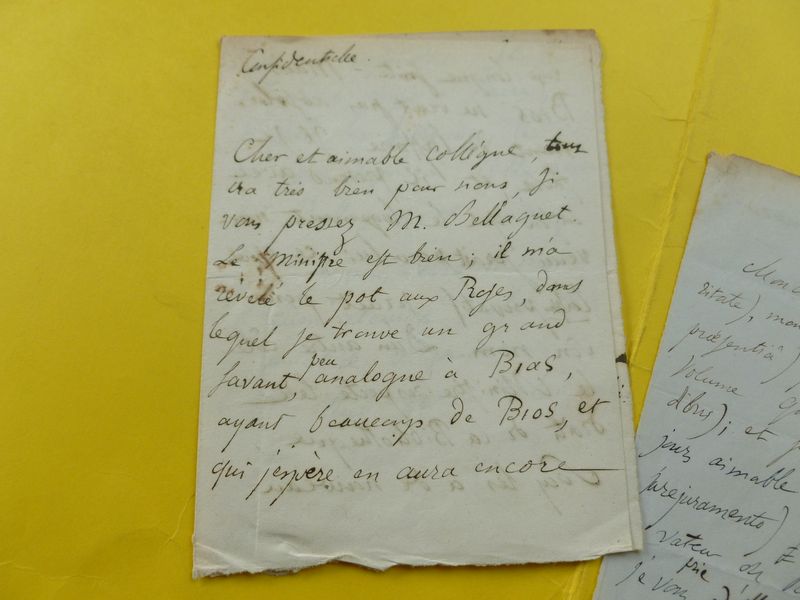 Confidentielle.
Cher et aimable collègue, tout
ira très bien pour nous, si
vous pressez M. Bellaguet.
Le Ministre est bien; il m'a
révélé le pot aux Roses, dans
lequel je trouve un grand
savant, peu analogue à BIAS,
ayant beaucoup de BIOS, et
qui j'espère en aura encore
ritate), mon
præsentiâ)
Volume
jours aimable
purejuramento)
vateur de
prie
je vous